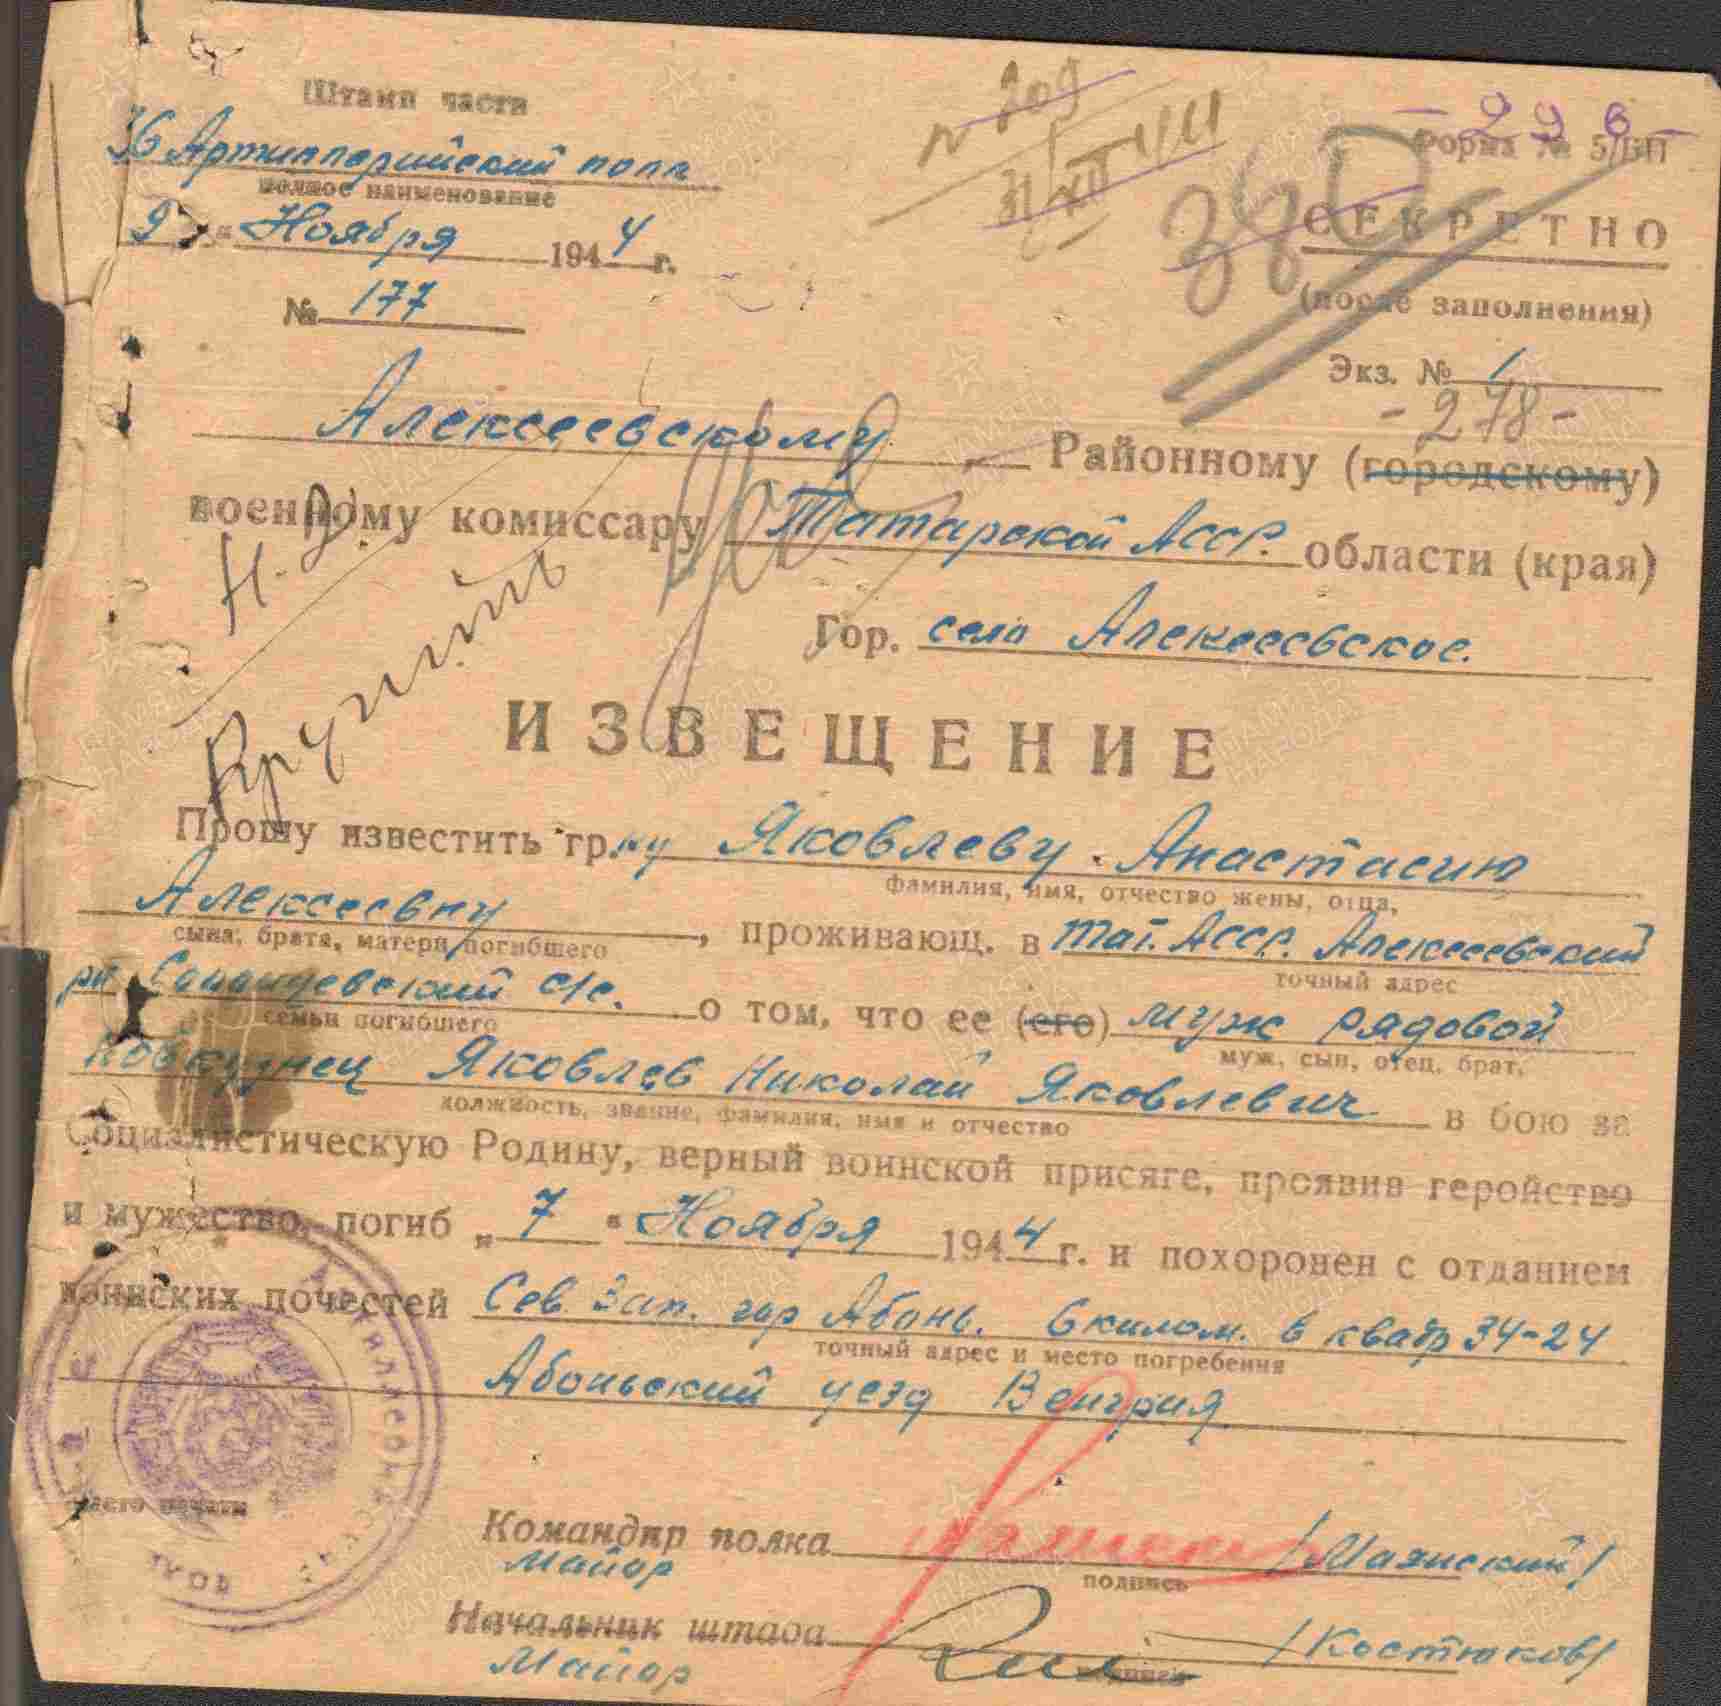 Штамп части
36 Артиллерийский полк
полное наименование
9 " Ноября 1944 г.
№ 177
N 209
31/XII 44
- 226 -
Форма № 5/ВП
380
СЕКРЕТНО
(после заполнения)
Экз. № 1
- 278 -
Алексеевскому Районному (городскому)
военному комиссару Татарской АССР. области (края)
Гор. село Алексеевское.
Н.
ИЗВЕЩЕНИЕ
Прошу известить гр.ку Яковлеву Анастасию
фамилия, имя, отчество жены, отца,
Алексеевну, проживающ. в Тат. АССР. Алексеевский
сына, брата, матери погибшего
точный адрес
рн с/с. о том, что ее (его) муж рядовой
семьи погибшего
муж, сын, отец, брат,
Ковкузнец Яковлев Николай Яковлевич в бою за
должность, звание, фамилия, имя и отчество
Социалистическую Родину, верный воинской присяге, проявив геройство
и мужество, погиб „ 7 " Ноября 1944 г. и похоронен с отданием
воинских почестей Сев. Зап. гор Абонь. 6 килом. в квадр 34-24
точный адрес и место погребения
Абоньский уезд Венгрия
АРТИЛЛЕРИЙСКИЙ ПОЛК
Место печати
Командир полка /Махиский/
Майор
подпись
Начальник штаба /Костюков/
Майор
подпись